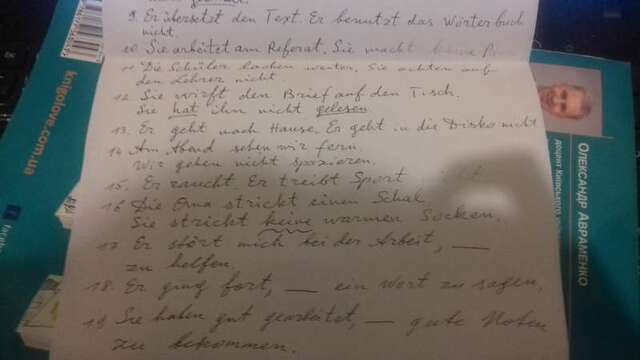 9. Er übersetzt den Text. Er benutzt das Wörterbuch
nicht.
10. Sie arbeitet am Referat. Sie macht keine
11. Die Schüler lachen weiter. Sie achten auf
den Lehrer nicht.
12. Sie wirft den Brief auf den Tisch.
Sie hat ihn nicht gelesen.
13. Er geht nach Hause. Er geht in die Disko nicht
14. Am Abend sehen wir fern.
Wir gehen nicht spazieren.
15. Er raucht. Er treibt Sport
16. Die Oma strickt einen Schal.
Sie strickt keine warmen Socken.
17. Er stört mich bei der Arbeit, ___
zu helfen.
18. Er ging fort, ___ ein Wort zu sagen.
19. Sie haben gut gearbeitet, ___ gute Noten
zu bekommen.
knigolove.com.ua
ОЛЕКСАНДР АВРАМЕНКО
доцент Київського